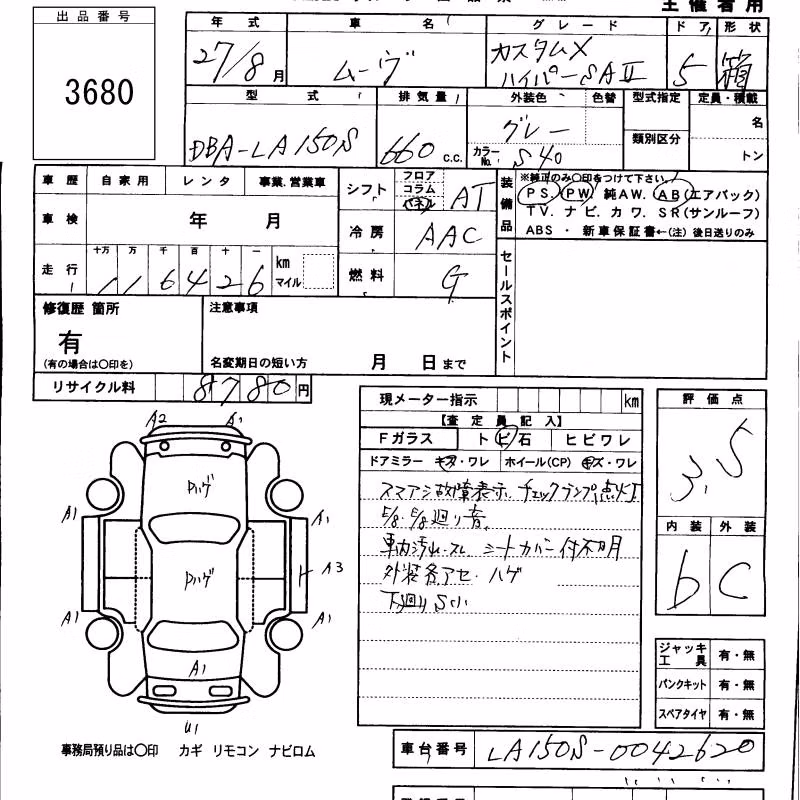 主催者用
出品番号
3680
年式 車名 グレード ドア 形状
27/8月 ムーヴ カスタムX ハイパーSAⅡ 5 箱
型式 排気量 外装色 色替 型式指定 定員・積載
DBA-LA150S 660 c.c. グレー 類別区分 名
カラーNo. S40 トン
車歴 自家用 レンタ 事業.営業車
シフト フロア コラム パネル AT
車検 年 月
冷房 AAC
走行 十万 万 千 百 十 一
116426 km マイル
燃料 G
装備品 ※純正のみ〇印をつけて下さい。
PS. PW. 純AW. AB(エアバック)
TV. ナビ. カワ. SR(サンルーフ)
ABS ・ 新車保証書←(注) 後日送りのみ
セールスポイント
修復歴 箇所
有
(有の場合は〇印を)
注意事項
名変期日の短い方 月 日まで
リサイクル料 8780円
現メーター指示 km
【査定員記入】
Fガラス トビ石 ヒビワレ
ドアミラー キズ・ワレ ホイール(CP) キズ・ワレ
スマアシ故障表示. チェックランプ点灯
廻り音
車内汚れ・スレ シートカバー付不明
外装各アセ・ハゲ
下廻りSい
評価点
3.5
内装 外装
b C
ジャッキ工具 有・無
パンクキット 有・無
スペアタイヤ 有・無
A2 A1
ハゲ
A1 A1
ハゲ A3
A1 A1
A1
U1
事務局預り品は〇印 カギ リモコン ナビロム
車台番号 LA150S-0042620